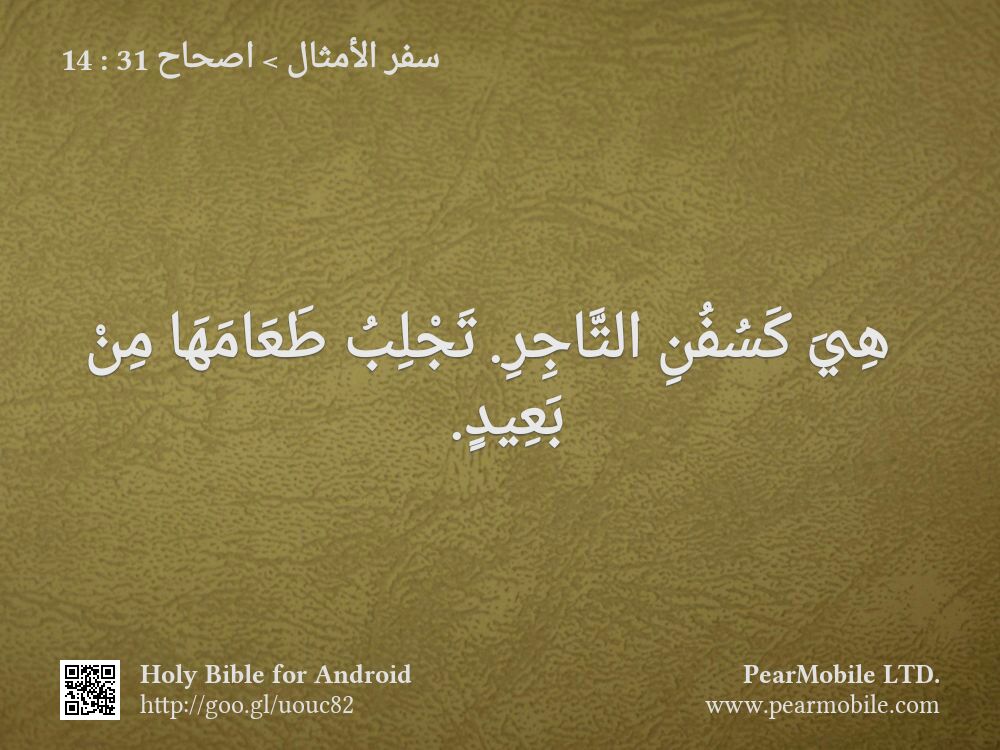 سفر الأمثال > اصحاح 31 : 14
هِيَ كَسُفُنِ التَّاجِرِ. تَجْلِبُ طَعَامَهَا مِنْ
بَعِيدٍ.
Holy Bible for Android
http://goo.gl/uouc82
PearMobile LTD.
www.pearmobile.com